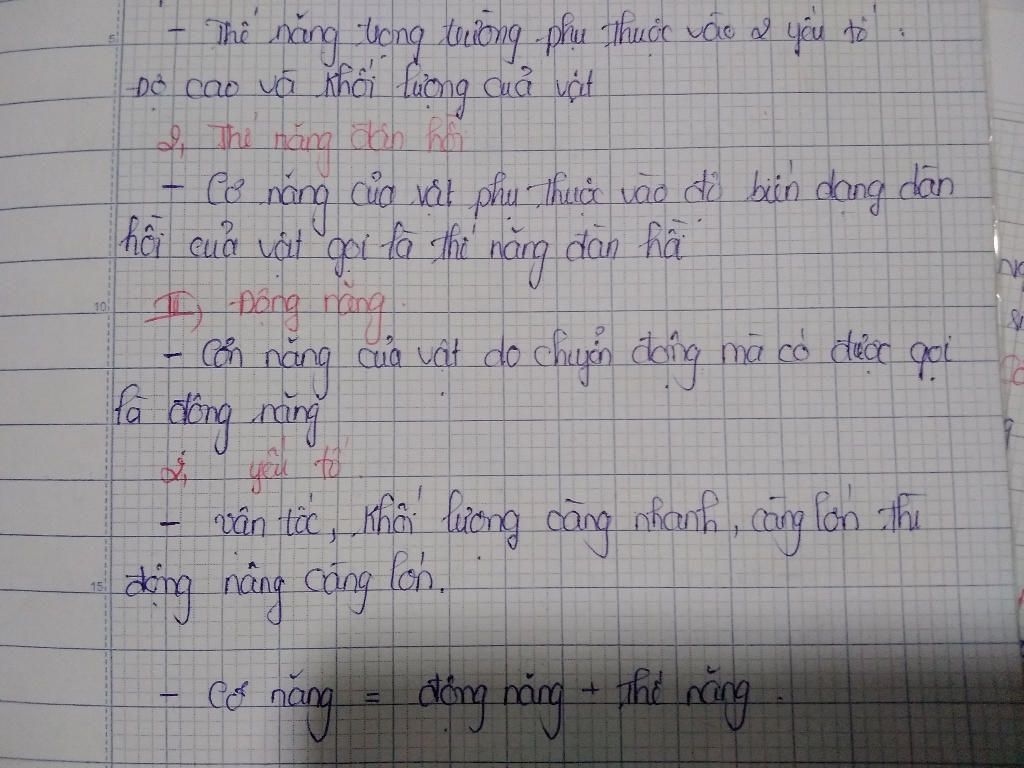 - Thế năng trọng trường phụ thuộc vào 2 yếu tố :
Độ cao và khối lượng cuả vật
2, Thế năng đàn hồi
- Cơ năng của vật phụ thuộc vào độ biến dạng đàn
hồi cuả vật gọi là thế năng đàn hồ
II, Động năng.
- Cơn năng của vật do chuyển động mà có được gọi
là động năng
2, yếu tố
- vân tốc, khối lượng càng nhanh, càng lớn thì
động năng càng lớn.
- Cơ năng = động năng + thế năng.